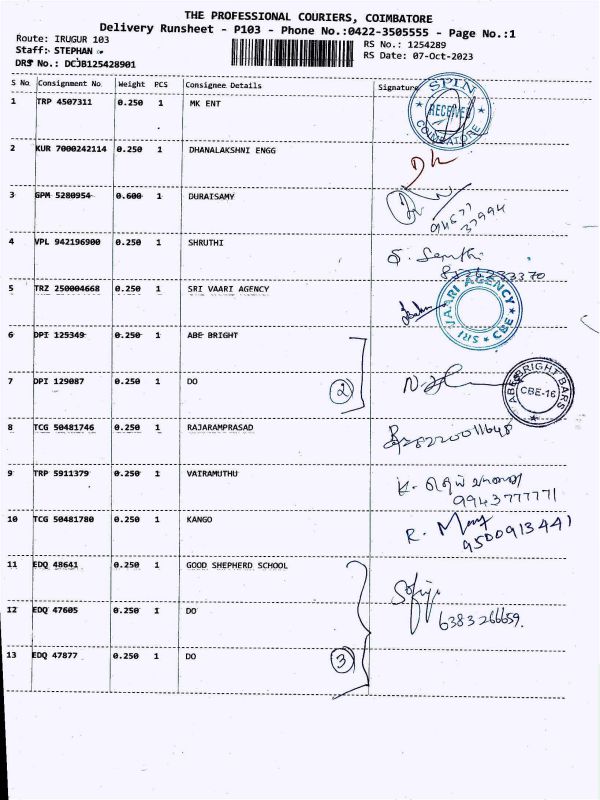 THE PROFESSIONAL COURIERS, COIMBATORE
Delivery Runsheet - P103 - Phone No.:0422-3505555 - Page No.:1
Route: IRUGUR 103
RS No.: 1254289
Staff: STEPHAN
RS Date: 07-Oct-2023
DRS No.: DCJB125428901
S No Consignment No Weight PCS Consignee Details Signature
1 TRP 4507311 0.250 1 MK ENT
SPIN RECEIVED COIMBATORE
2 KUR 7000242114 0.250 1 DHANALAKSHNI ENGG
3 GPM 5280954 0.600 1 DURAISAMY
4 VPL 942196900 0.250 1 SHRUTHI
5 TRZ 250004668 0.250 1 SRI VAARI AGENCY
SRI VAARI AGENCY CBE
6 DPI 125349 0.250 1 ABE BRIGHT
7 DPI 129087 0.250 1 DO 2
ABE BRIGHT BARS CBE-16
8 TCG 50481746 0.250 1 RAJARAMPRASAD
9 TRP 5911379 0.250 1 VAIRAMUTHU
9943777771
10 TCG 50481780 0.250 1 KANGO
9500913441
11 EDQ 48641 0.250 1 GOOD SHEPHERD SCHOOL
12 EDQ 47605 0.250 1 DO
6383266659.
13 EDQ 47877 0.250 1 DO 3